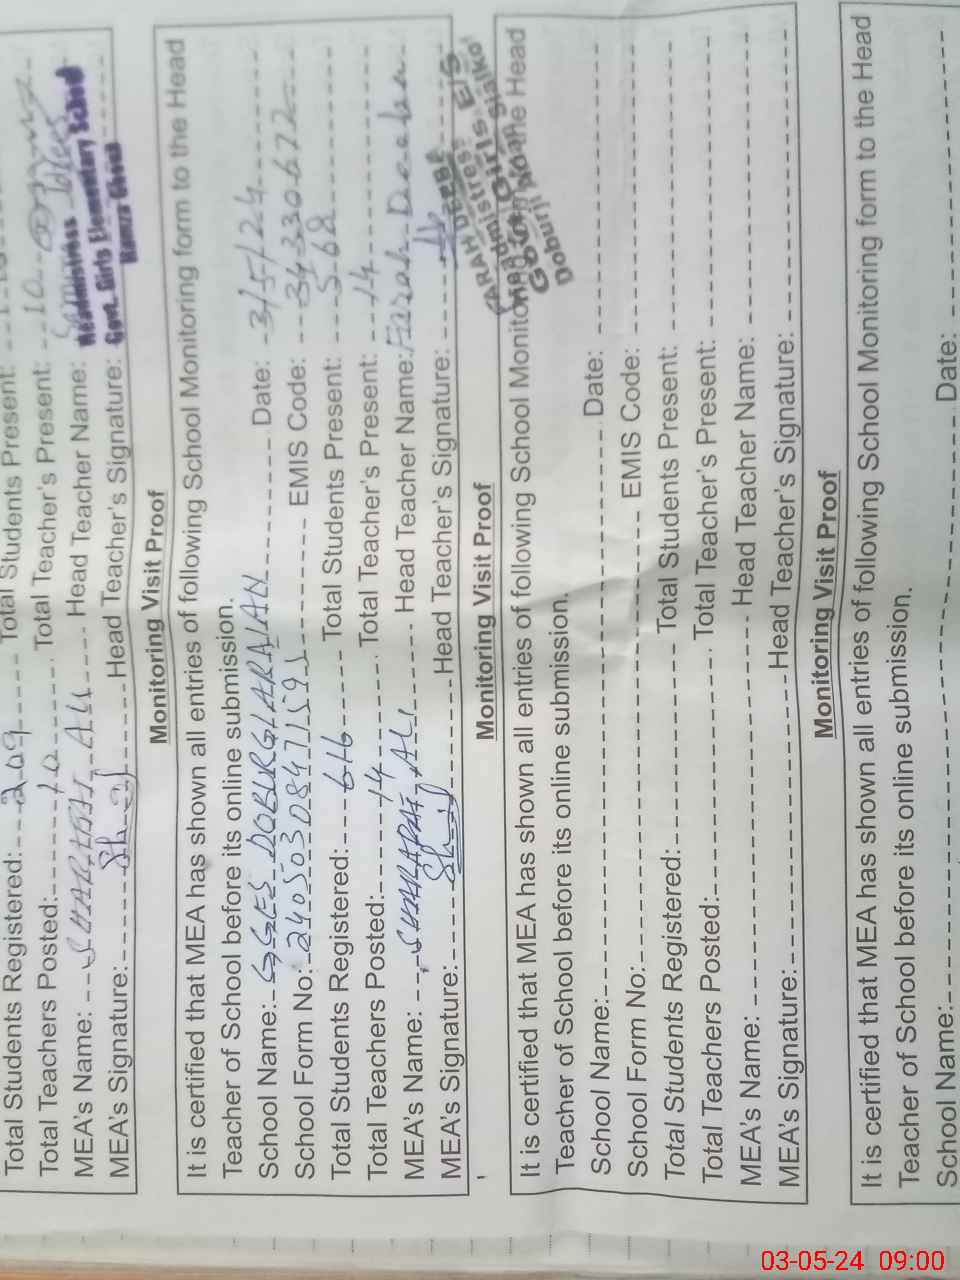 Total Students Registered: 209 Total Students Present:
Total Teachers Posted: 10 Total Teacher's Present: 10
MEA's Name: SHARAFAT ALI Head Teacher Name:
MEA's Signature: Head Teacher's Signature:
Headmistress
Govt. Girls Elementary School
Monitoring Visit Proof
It is certified that MEA has shown all entries of following School Monitoring form to the Head
Teacher of School before its online submission.
School Name: GGES DOBURGI ARAIAN Date: 3/5/24
School Form No: Total EMIS Code: 34330622
Total Students Registered: 616 Total Students Present: 568
Total Teachers Posted: 14 Total Teacher's Present: 14
MEA's Name: SHARAFAT ALI Head Teacher Name: Farah Deeba
MEA's Signature: Head Teacher's Signature:
FARAH DEEBA
Monitoring Visit Proof
It is certified that MEA has shown all entries of following School Monitoring form to the Head
Teacher of School before its online submission.
School Name: Date:
School Form No: EMIS Code:
Total Students Registered: Total Students Present:
Total Teachers Posted: Total Teacher's Present:
MEA's Name: Head Teacher Name:
MEA's Signature: Head Teacher's Signature:
Monitoring Visit Proof
It is certified that MEA has shown all entries of following School Monitoring form to the Head
Teacher of School before its online submission.
School Name: Date:
03-05-24 09:00